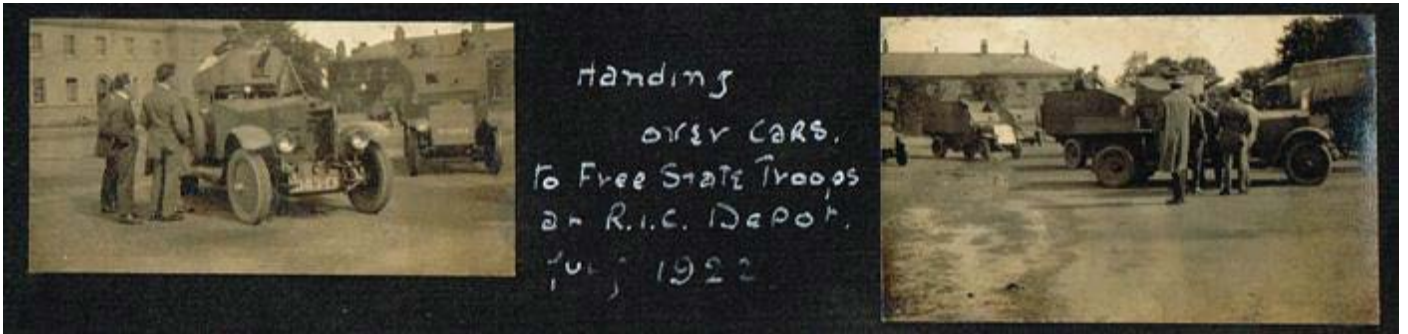 Handing
over CARS.
to Free State Troops
at R.I.C. Depot.
July 1922